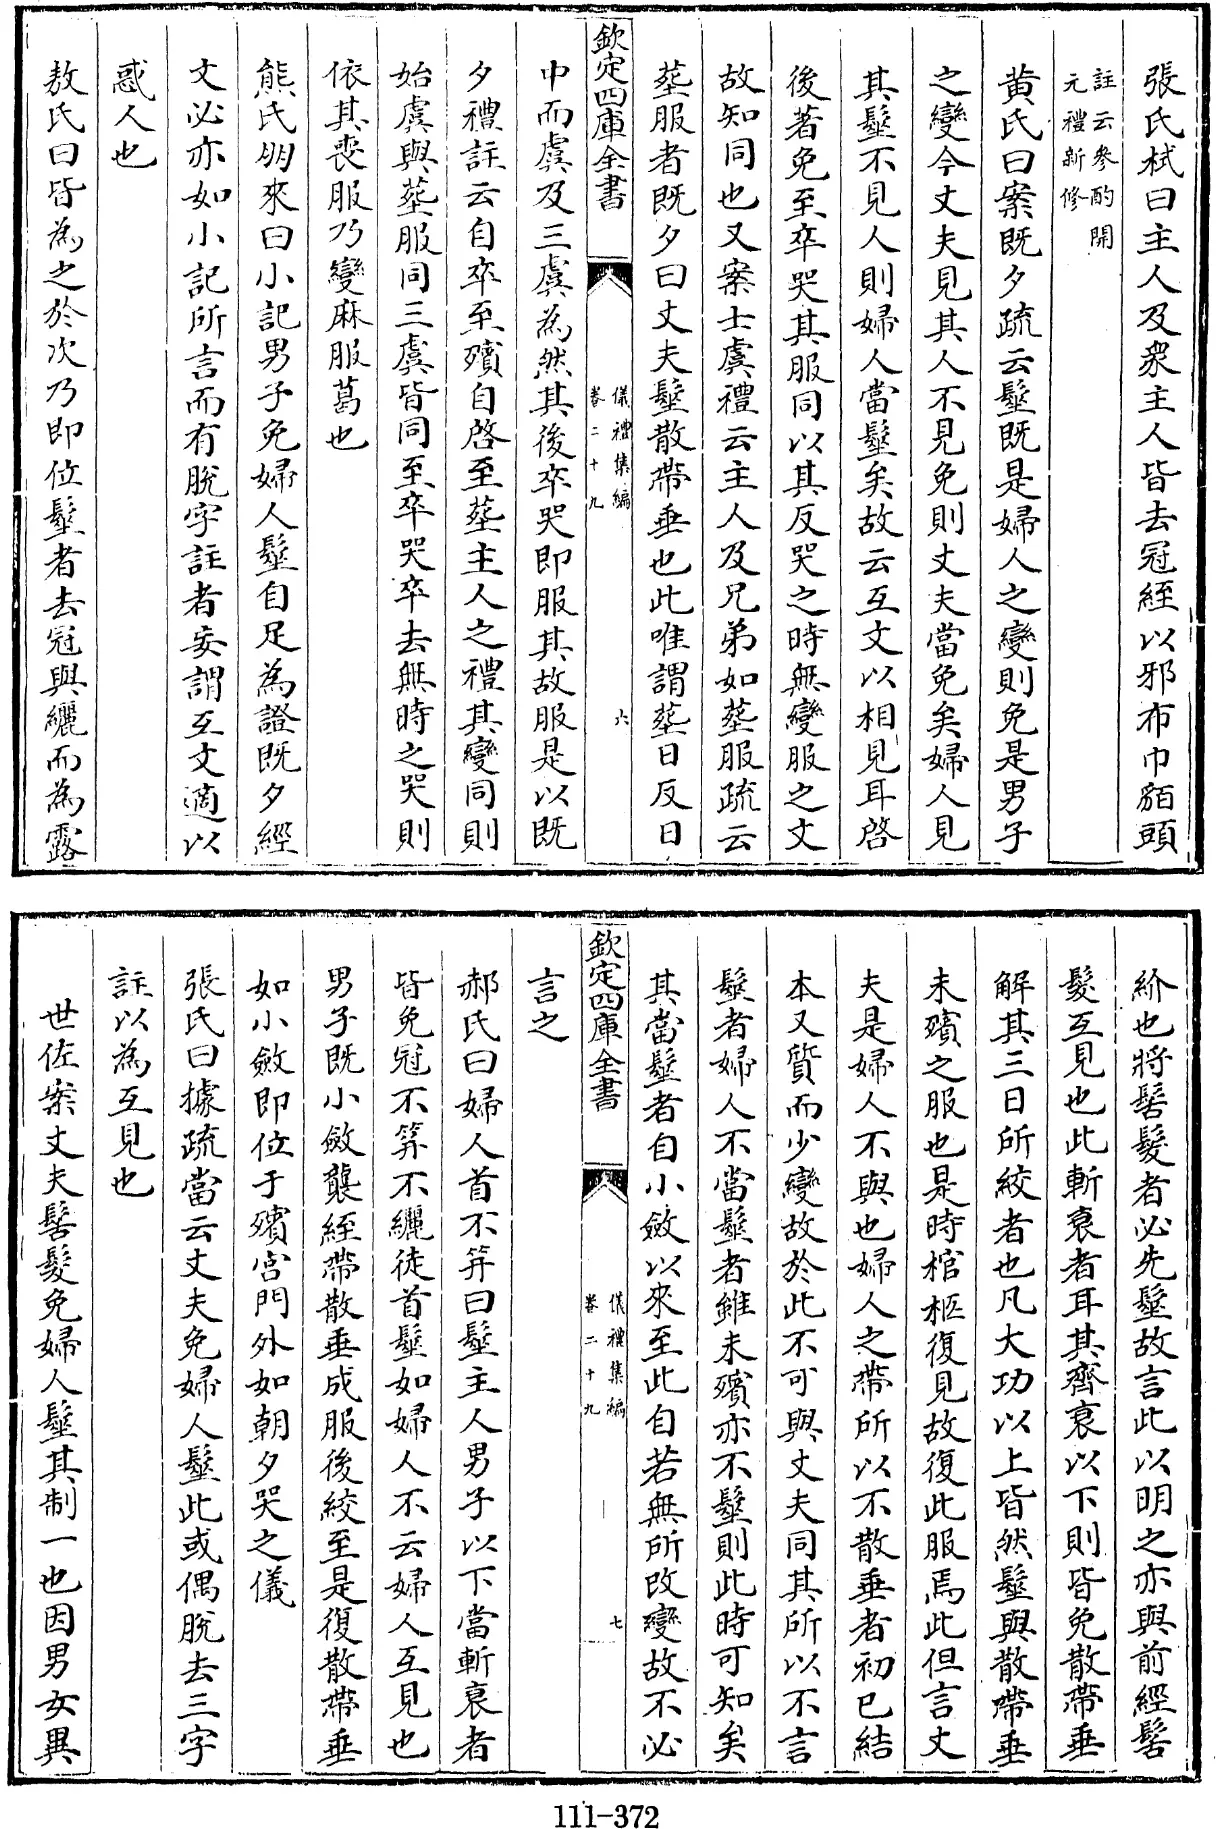 張氏栻曰主人及衆主人皆去冠絰以邪布巾貊頭
註云參酌開
元禮新修
黄氏曰案既夕疏云髽既是婦人之變則免是男子
之變今丈夫見其人不見免則丈夫當免矣婦人見
其髽不見人則婦人當髽矣故云互文以相見耳啓
後著免至卒哭其服同以其反哭之時無變服之文
故知同也又案士虞禮云主人及兄弟如塟服疏云
塟服者既夕曰丈夫髽散帶垂也此唯謂塟日反日
欽定四庫全書
儀禮集編
卷二十九
六
中而虞及三虞為然其後卒哭即服其故服是以既
夕禮註云自卒至殯自啓至塟主人之禮其變同則
始虞與塟服同三虞皆同至卒哭卒去無時之哭則
依其喪服乃變麻服葛也
熊氏朋來曰小記男子免婦人髽自足為證既夕經
文必亦如小記所言而有脫字註者妄謂互文適以
惑人也
敖氏曰皆為之於次乃即位髽者去冠與纚而為露
紒也將髺髮者必先髽故言此以明之亦與前經髺
髮互見也此斬衰者耳其齊衰以下則皆免散帶垂
解其三日所絞者也凡大功以上皆然髽與散帶垂
未殯之服也是時棺柩復見故復此服焉此但言丈
夫是婦人不與也婦人之帶所以不散垂者初已結
本又質而少變故於此不可與丈夫同其所以不言
髽者婦人不當髽者雖未殯亦不髽則此時可知矣
其當髽者自小斂以來至此自若無所改變故不必
欽定四庫全書
儀禮集編
卷二十九
七
言之
郝氏曰婦人首不笄曰髽主人男子以下當斬衰者
皆免冠不笄不纚徒首髽如婦人不云婦人互見也
男子既小斂襲絰帶散垂成服後絞至是復散帶垂
如小斂即位于殯宮門外如朝夕哭之儀
張氏曰據疏當云丈夫免婦人髽此或偶脫去三字
註以為互見也
世佐案丈夫髺髮免婦人髽其制一也因男女異
111-372